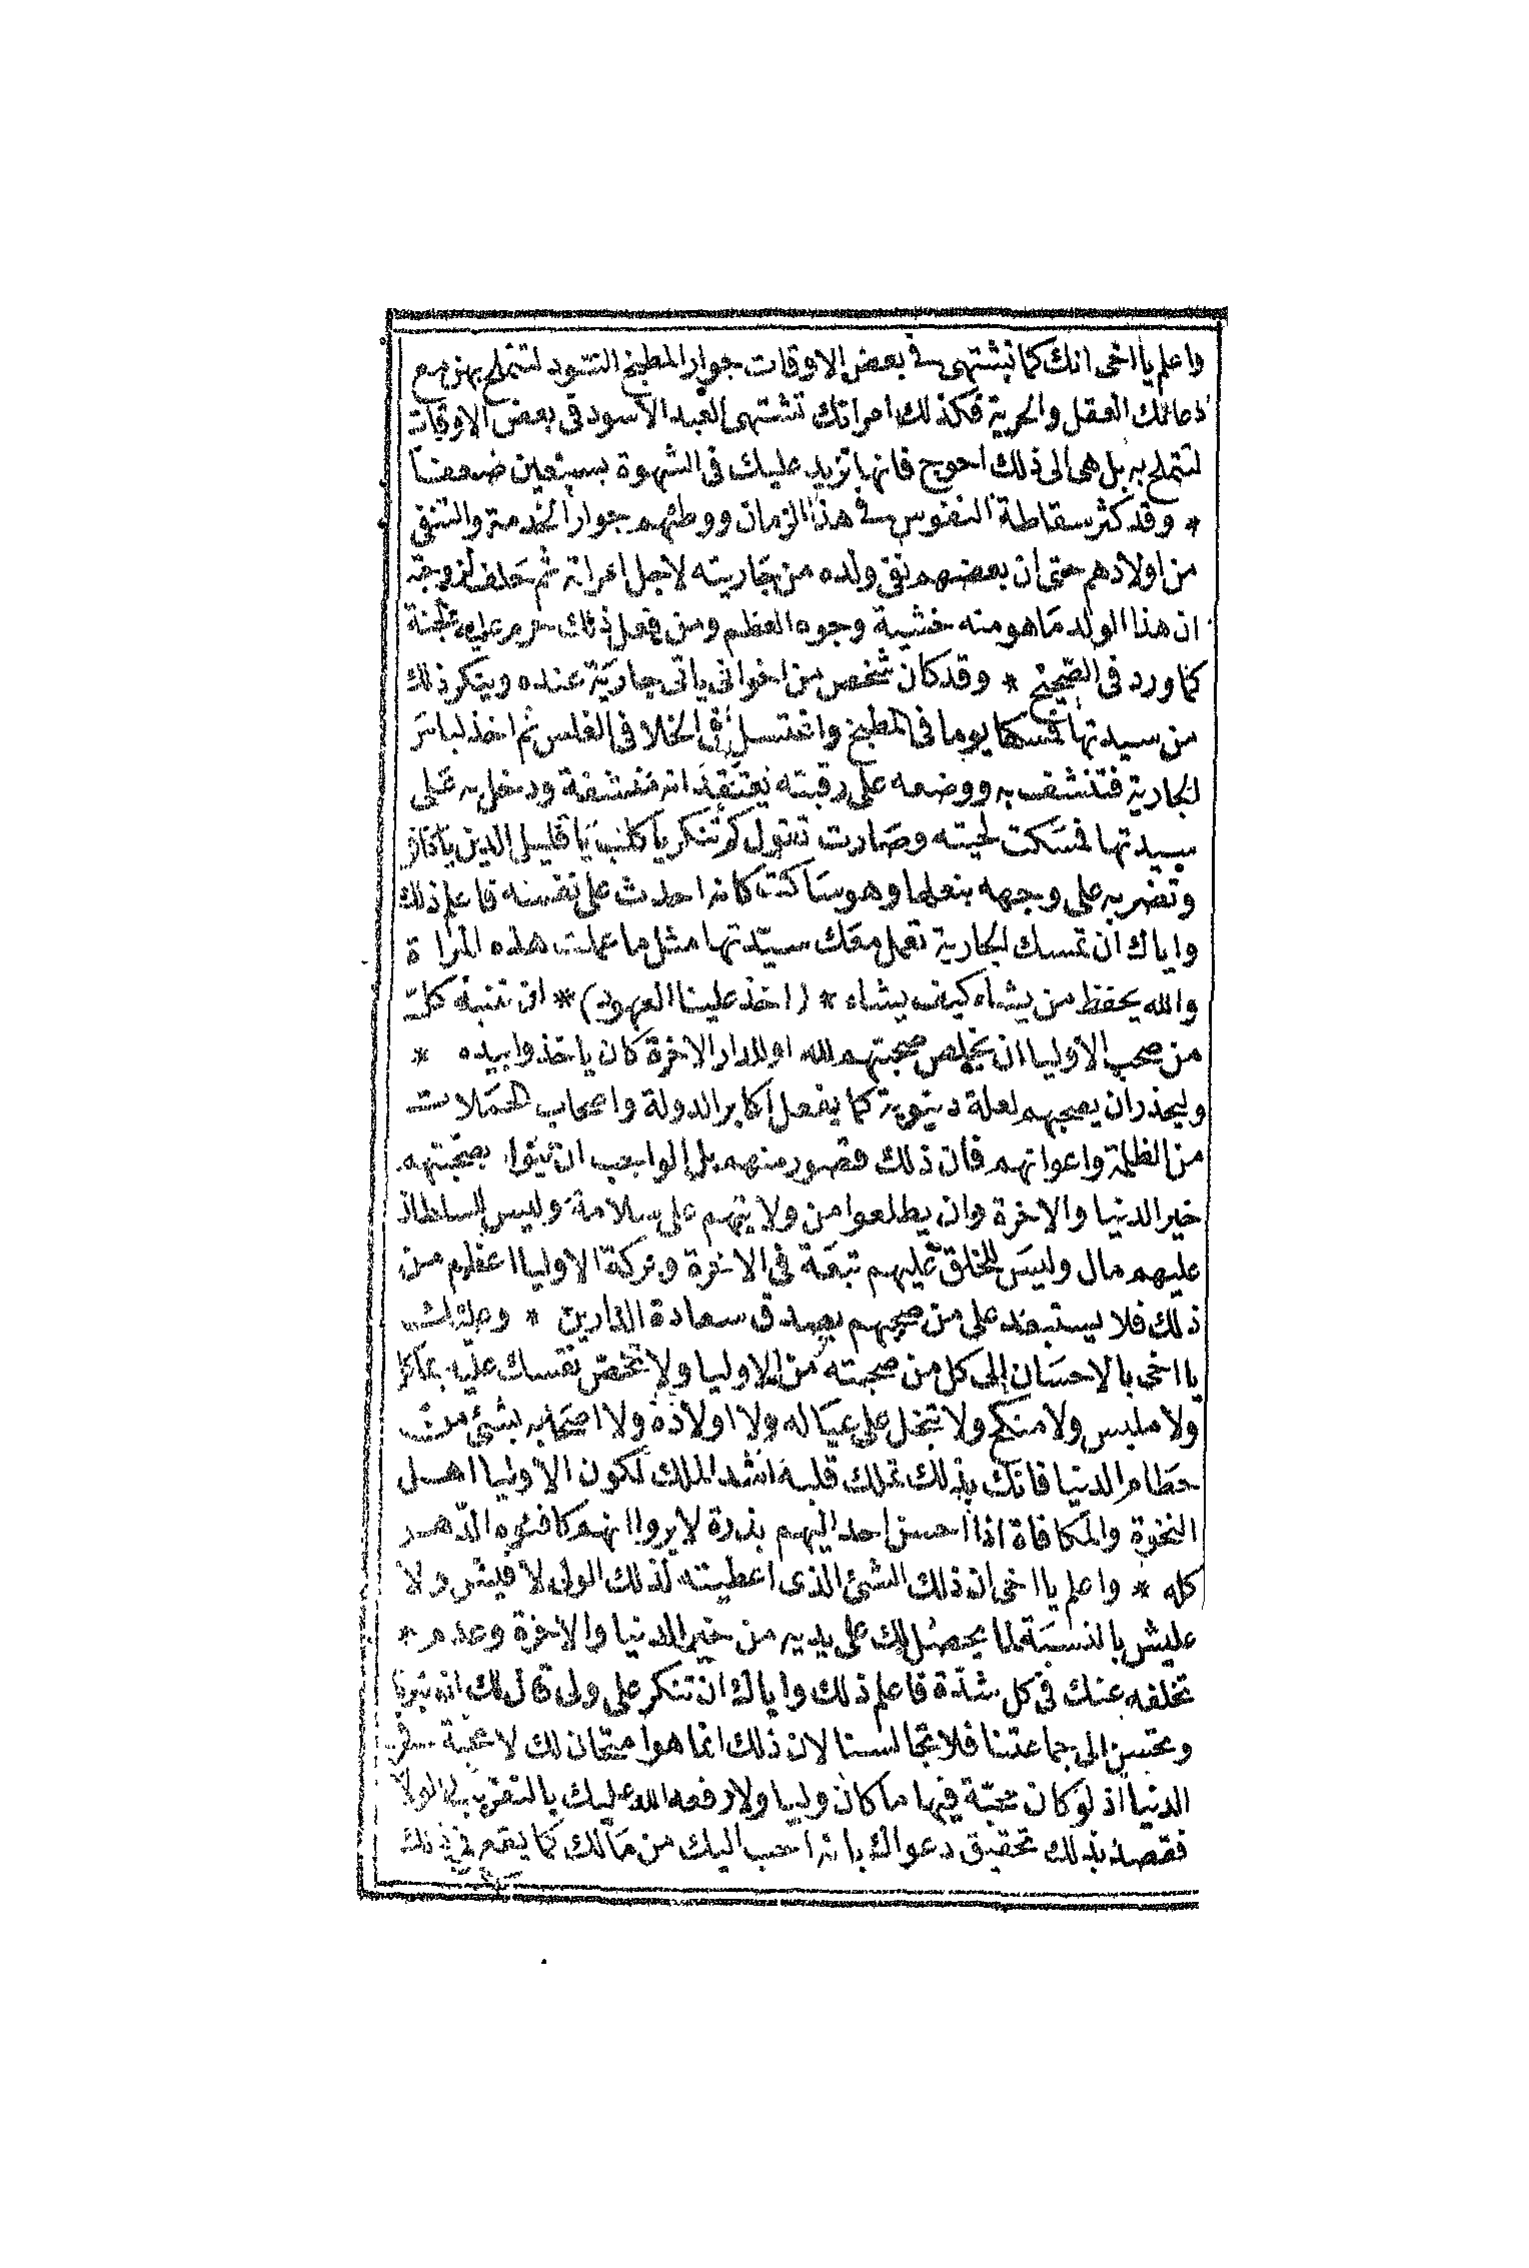 واعلم يا اخى انك كما تشتهى فى بعض الاوقات جوار المطبخ السود لتتملح بهن مع
دعائك العقل والحرية فكذلك امراتك تشتهى العبد الاسود فى بعض الاوقات
لتتملح به بل هى الى ذلك احوج فانها تزيد عليك فى الشهوة بسبعين ضعفا
* وقد كثر سقاطة النفوس فى هذا الزمان ووطئهم جوار الخدمة والتنقى
من اولادهم حتى ان بعضهم نفى ولده من جاريته لاجل امراته ثم حلف لزوجته
ان هذا الولد ما هو منه خشية وجوه العظم ومن فعل ذلك حرم عليه الجنة
كما ورد فى الصحيح * وقد كان شخص من اخوانى ياتى جارية عنده وينكر ذلك
من سيدتها فمسكها يوما فى المطبخ واغتسل فى الخلا فى الغلس ثم اخذ لباس
الجارية فتنشف به ووضعه على رقبته يعتقد انه منشفة ودخل به على
سيدتها فمسكت لحيته وصارت تقول كم تنكر يا كلب يا قليل الدين
وتضربه على وجهه بنعلها وهو ساكت كانه احدث على نفسه فاعلم ذلك
واياك ان تمسك الجارية تعمل معك سيدتها مثل ما عملت هذه المراة
والله يحفظ من يشاء كيف يشاء * (اخذ علينا العهود) * ان ننبه كل
من صحب الاوليا ان يخلص صحبتهم لله او للدار الاخرة كان ياخذوا بيده *
وليحذر ان يصحبهم لعلة دنيوية كما يفعل اكابر الدولة واصحاب الحملات
من الظلمة واعوانهم فان ذلك قصور منهم بل الواجب ان ينووا بصحبتهم
خير الدنيا والاخرة وان يطلعوا من ولايتهم على سلامة وليس للسلطان
عليهم مال وليس للخلق عليهم تبعة فى الاخرة وبركة الاوليا اعظم من
ذلك فلا يستبعد على من صحبهم بصدق سعادة الدارين * وعليك
يا اخى بالاحسان الى كل من صحبته من الاوليا ولا تخص نفسك عليه بماكل
ولا ملبس ولا منكح ولا تبخل على عياله ولا اولاده ولا اصحابه بشئ من
حطام الدنيا فانك بذلك تملك قلبه اشد الملك لكون الاوليا اهل
النخوة والمكافاة اذا احسن احد اليهم بذرة لا يروا انهم كافئوه الدهر
كله * واعلم يا اخى ان ذلك الشئ الذى اعطيته لذلك الولى لا فيش ولا
عليش بالنسبة لما يحصل لك على يديه من خير الدنيا والاخرة وعدم *
تخلفه عنك فى كل شدة فاعلم ذلك واياك ان تنكر على ولى قال لك ان تبرنا
وتحسن الى جماعتنا فلا تجالسنا لان ذلك انما هو امتحان لك لا محبة فى
الدنيا اذ لو كان محبة فيها ما كان وليا ولا رفعه الله عليك بالتقريب
فقصد بذلك تحقيق دعواك بانه احب اليك من مالك كما يقع فى ذلك